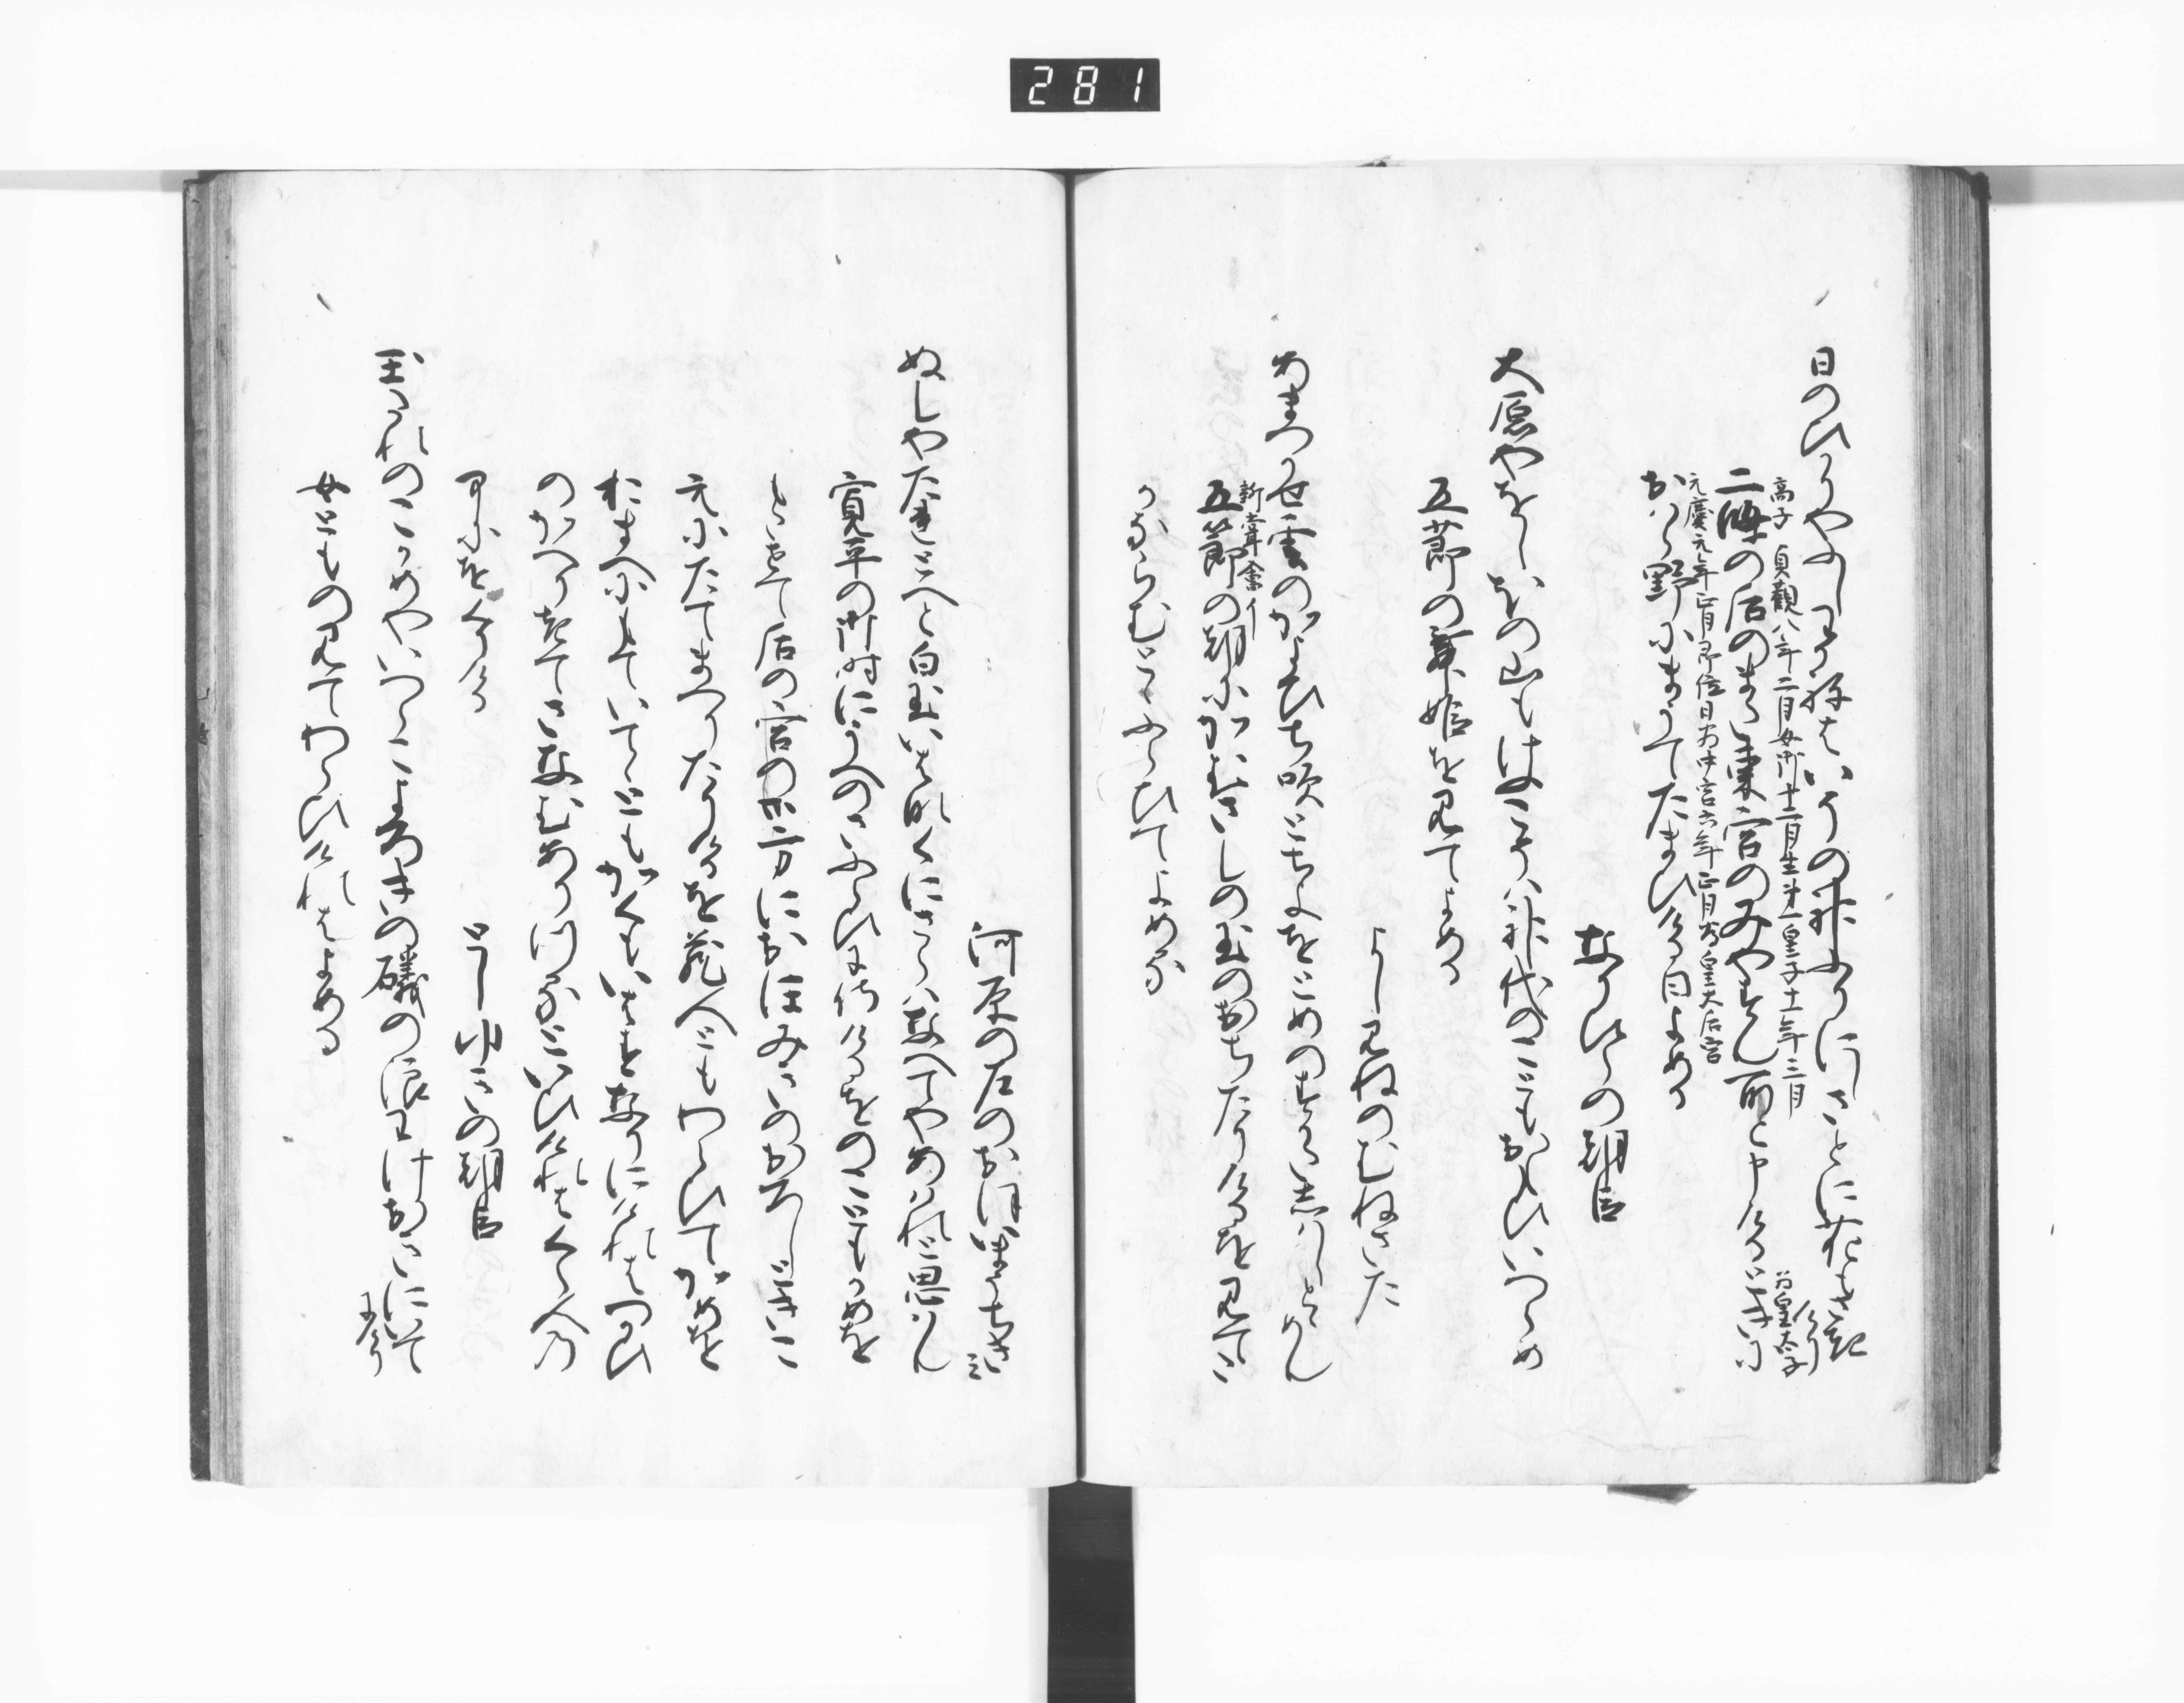 281
日のひかりやふしわかねはいその神ふりにしさとに花もさき
けり
高子 貞観八年二月女御十二月生第一皇子十一年二月
為皇太子
二條の后のまた東宮のみやすん所と申けるときに
元慶元年正月即位日為中宮六年正月為皇太后宮
おほはら野にまうてたまひける日よめる
なりひらの朝臣
大原やをしほの山もけふこそは神代のこともおもひいつらめ
五節の舞姫を見てよめる
よしみねのむねさた
あまつかせ雲のかよひち吹とちよをとめのすかたしはしとゝめん
新嘗會イ
五節の朝にかむさしの玉のおちたりけるを見てた
かならむとゝふらひてよめる
河原の左のおほいまうちきみ
ぬしやたれとへと白玉いはなくにさらはなへてやあはれと思はん
寛平の御時にうへのさふらひに侍けるをのこともかめを
もたせて后の宮の御方におほみきのおろしときこ
えにたてまつりたりけるを蔵人ともわらひてかめを
おまへにもていてゝともかくもいはすなりにけれはつかひ
のかへりきてさなむありつるといひけれはくら人の
中にをくりける
としゆきの朝臣
玉たれのこかめやいつらこよろきの礒の浪わけおきにいて
にけり
女ともの見てわらひけれはよめる